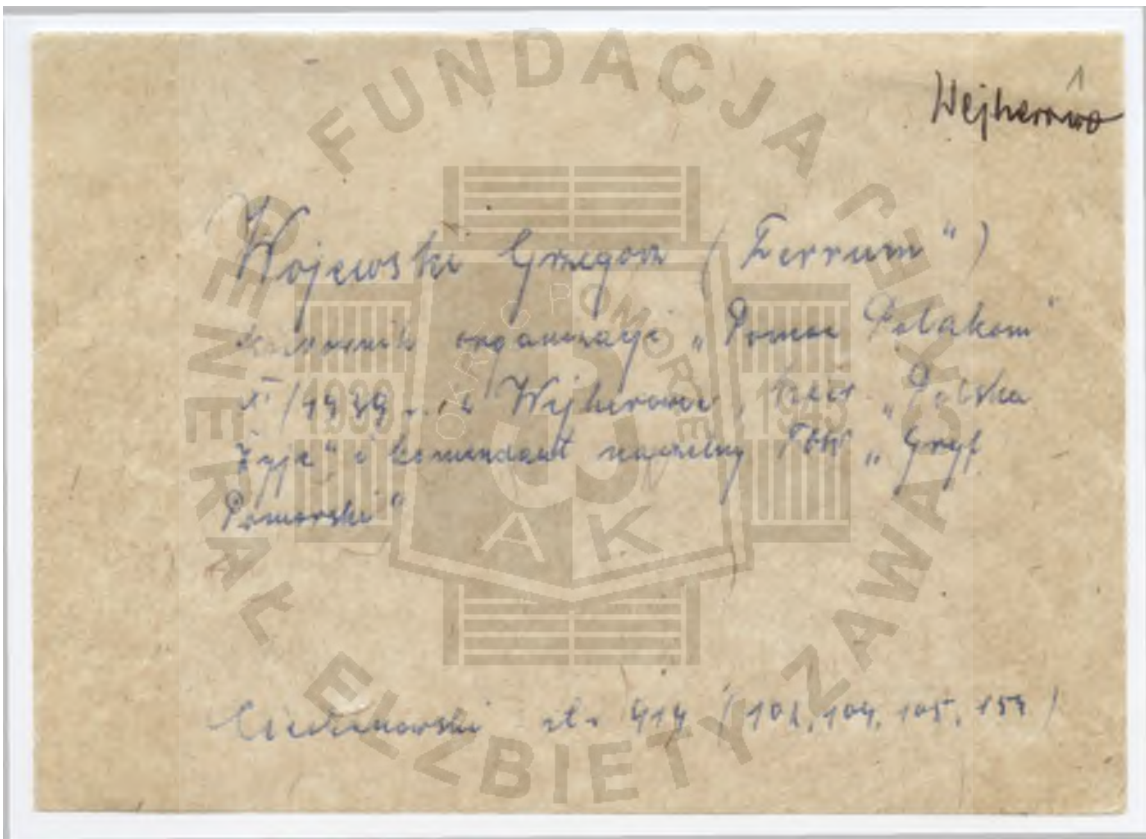 1
Wejherowo
Wojewski Grzegorz ("Ferrum")
kierownik organizacji „Pomoc Polakom"
XI/1939 ... w Wejherowie, "Polska
Żyje" i komendant naczelny TOW „Gryf
Pomorski"
Ciechanowski str 414 (102, 104, 105, 157)
FUNDACJA GENERAŁ ELŻBIETY ZAWACKIEJ
OKRĘG POMORZE
1939 1945
AK